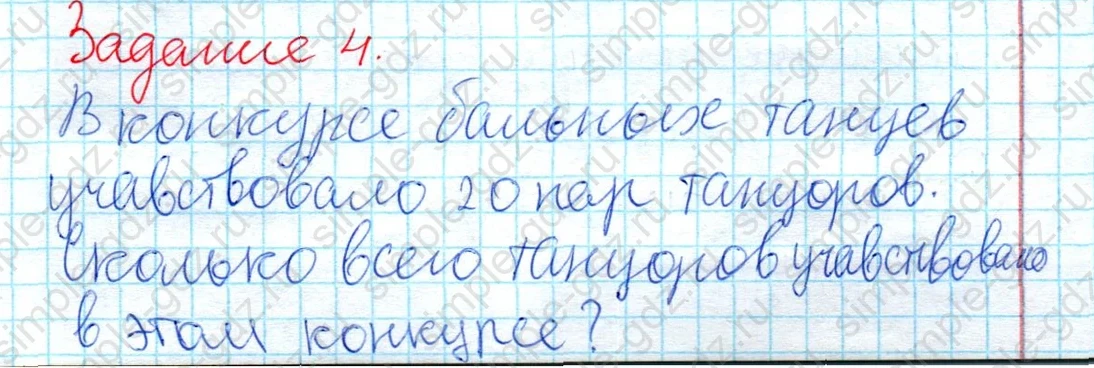 Задание 4.
В конкурсе бальных танцев
учавствовало 20 пар танцоров.
Сколько всего танцоров учавствовало
в этом конкурсе?